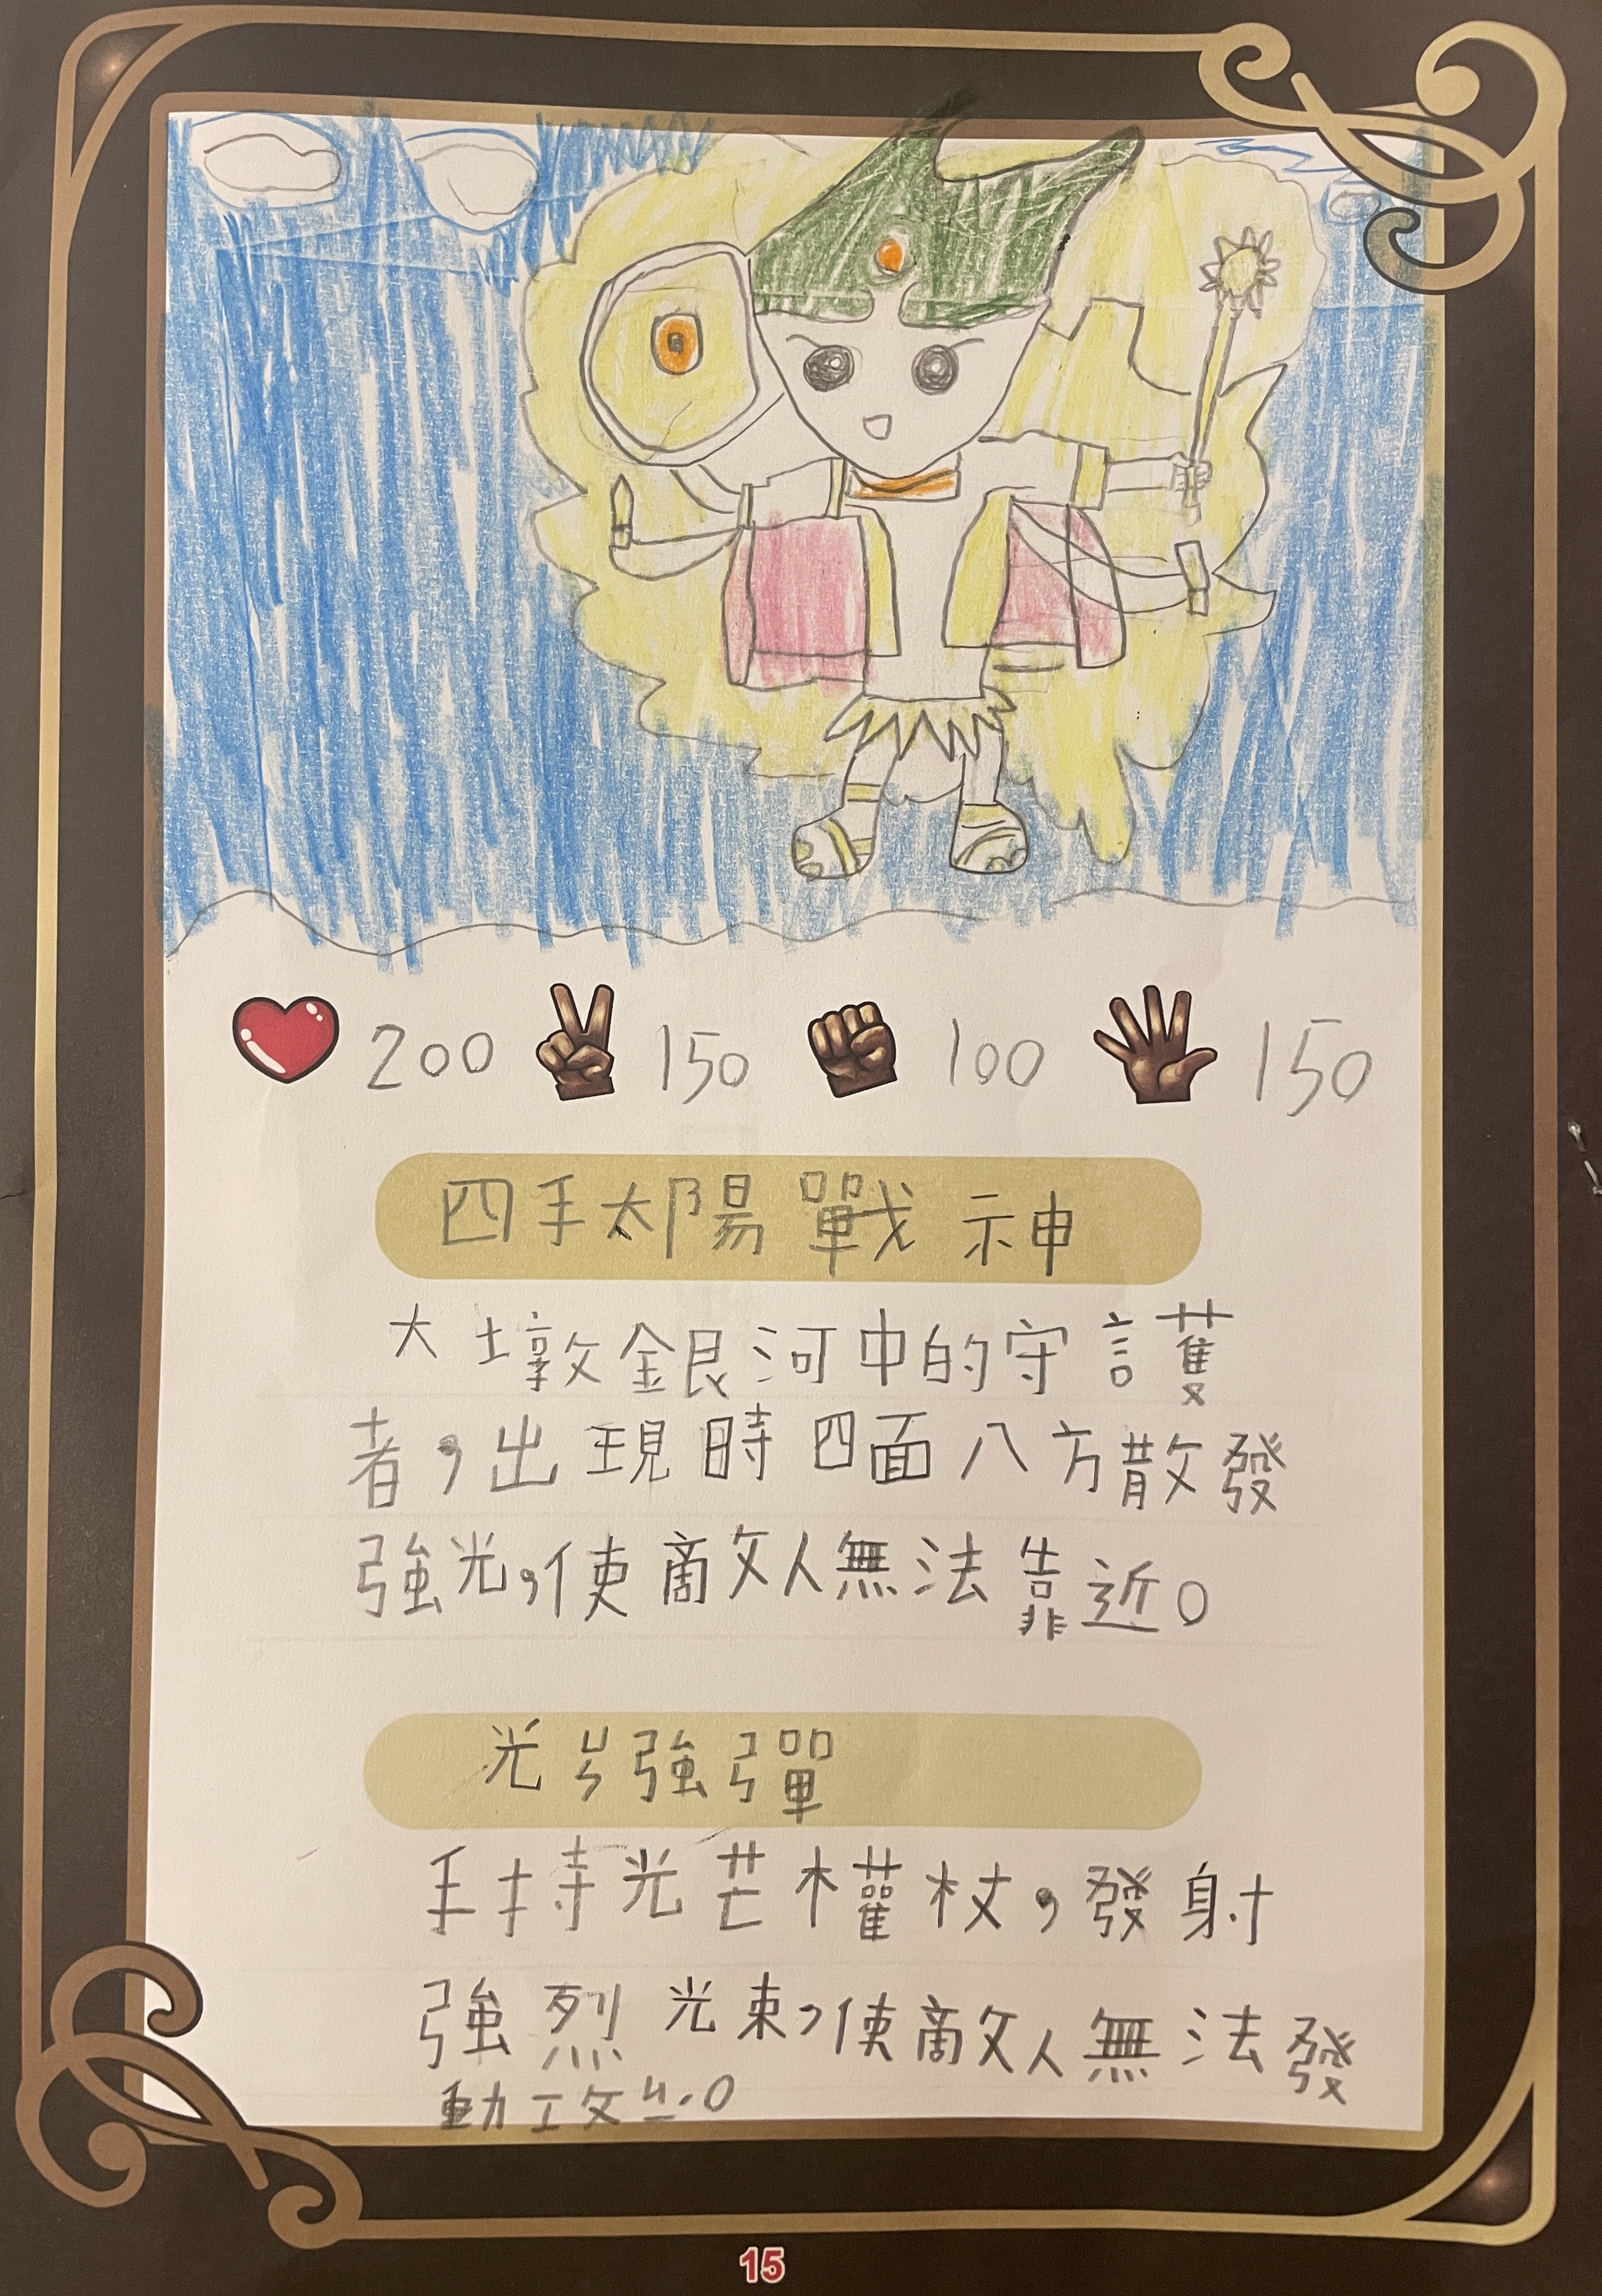 200 150 100 150
四手太陽戰神
大墩銀河中的守護
者，出現時四面八方散發
強光，使敵人無法靠近。
光ㄩㄣ強彈
手持光芒權杖，發射
強烈光束，使敵人無法發
動攻ㄐㄧˊ。
15